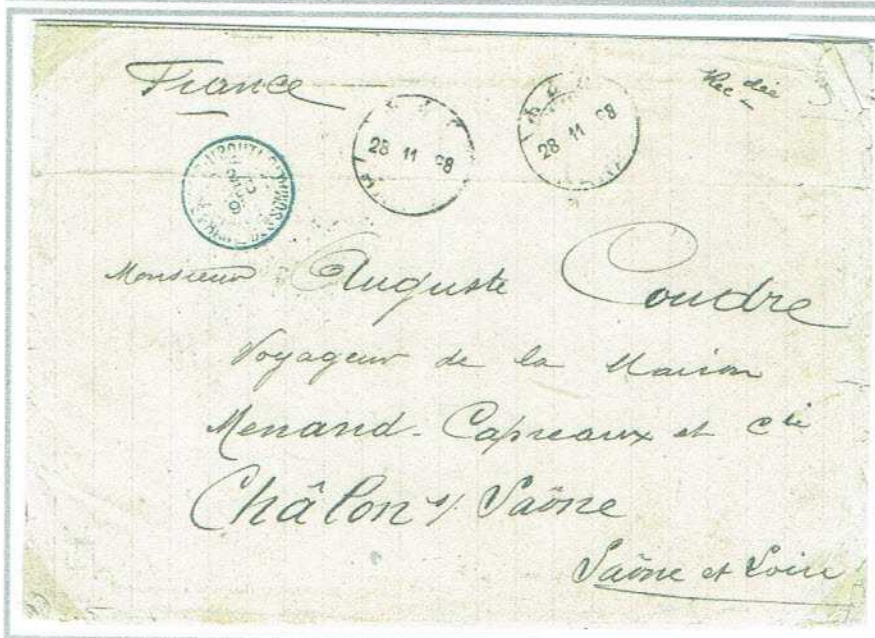 France
Rec dée
28 11 98
28 11 98
Monsieur Auguste Coudre
Voyageur de la Maison
Menand-Capreaux et Cie
Châlon s/ Saône
Saône et Loire